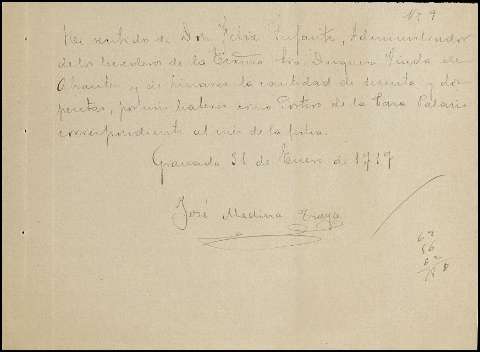 Nº 9
He recibido de Don Félix Infante, Administrador
de los herederos de la Excma Sra Duquesa Viuda de
Abrantes y de Linares la cantidad de sesenta y dos
pesetas, por mi haberes como Portero de la Casa Palacio
correspondiente al mes de la fecha.
Granada 31 de Enero de 1919
José Medina Traya
62
56
62